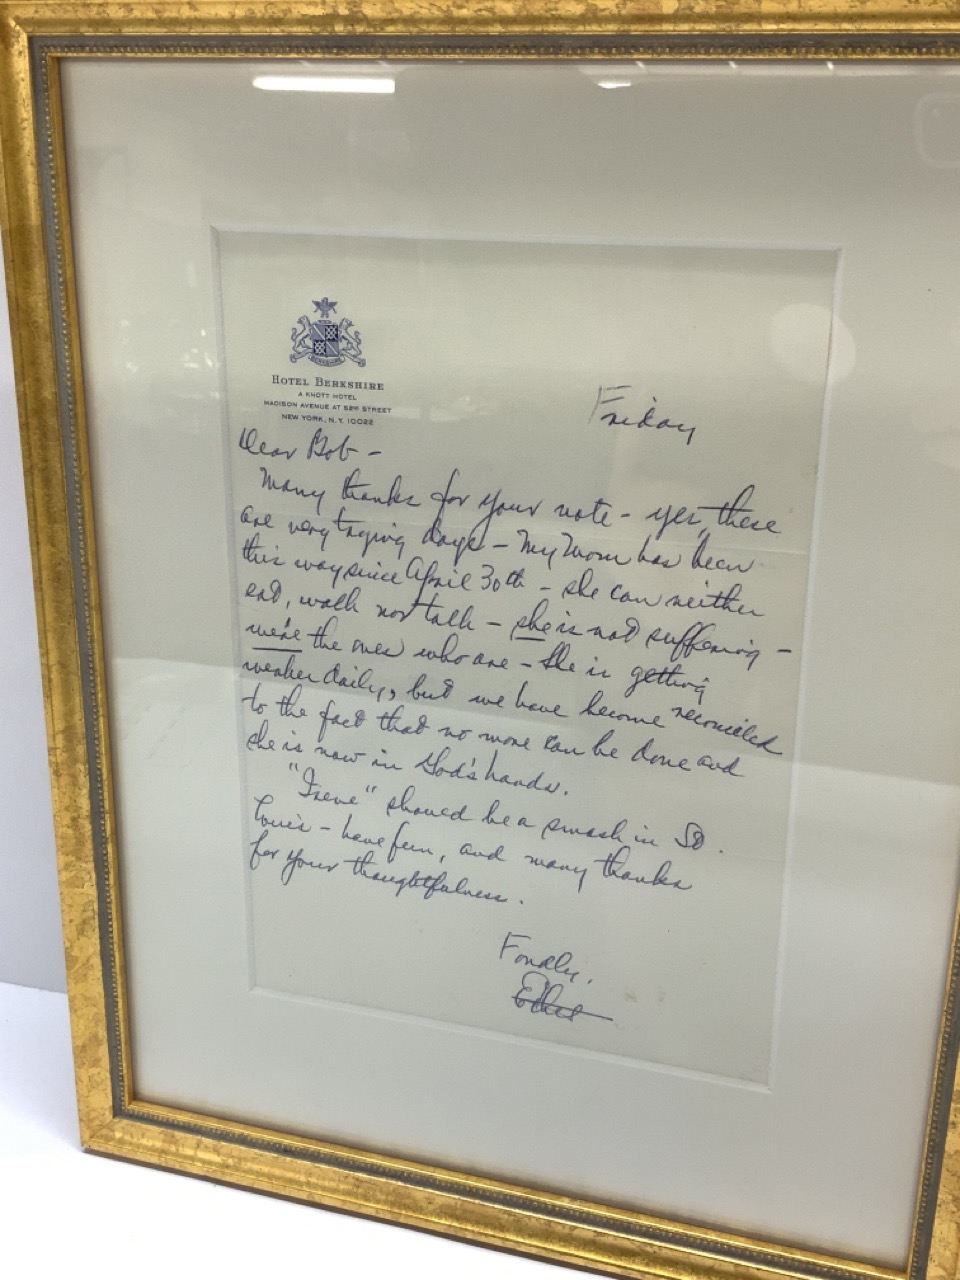 BERKSHIRE
HOTEL BERKSHIRE
A KNOTT HOTEL
MADISON AVENUE AT 52ND STREET
NEW YORK, N.Y. 10022
Friday
Dear Bob -
Many thanks for your note - yes, these
are very trying days - My Mom has been
this way since April 30th - she can neither
eat, walk nor talk - she is not suffering -
we're the ones who are - She is getting
weaker daily, but we have become reconciled
to the fact that no more can be done and
she is now in God's hands.
"Irene" should be a smash in St.
Louis - have fun, and many thanks
for your thoughtfulness.
Fondly,
Ethel